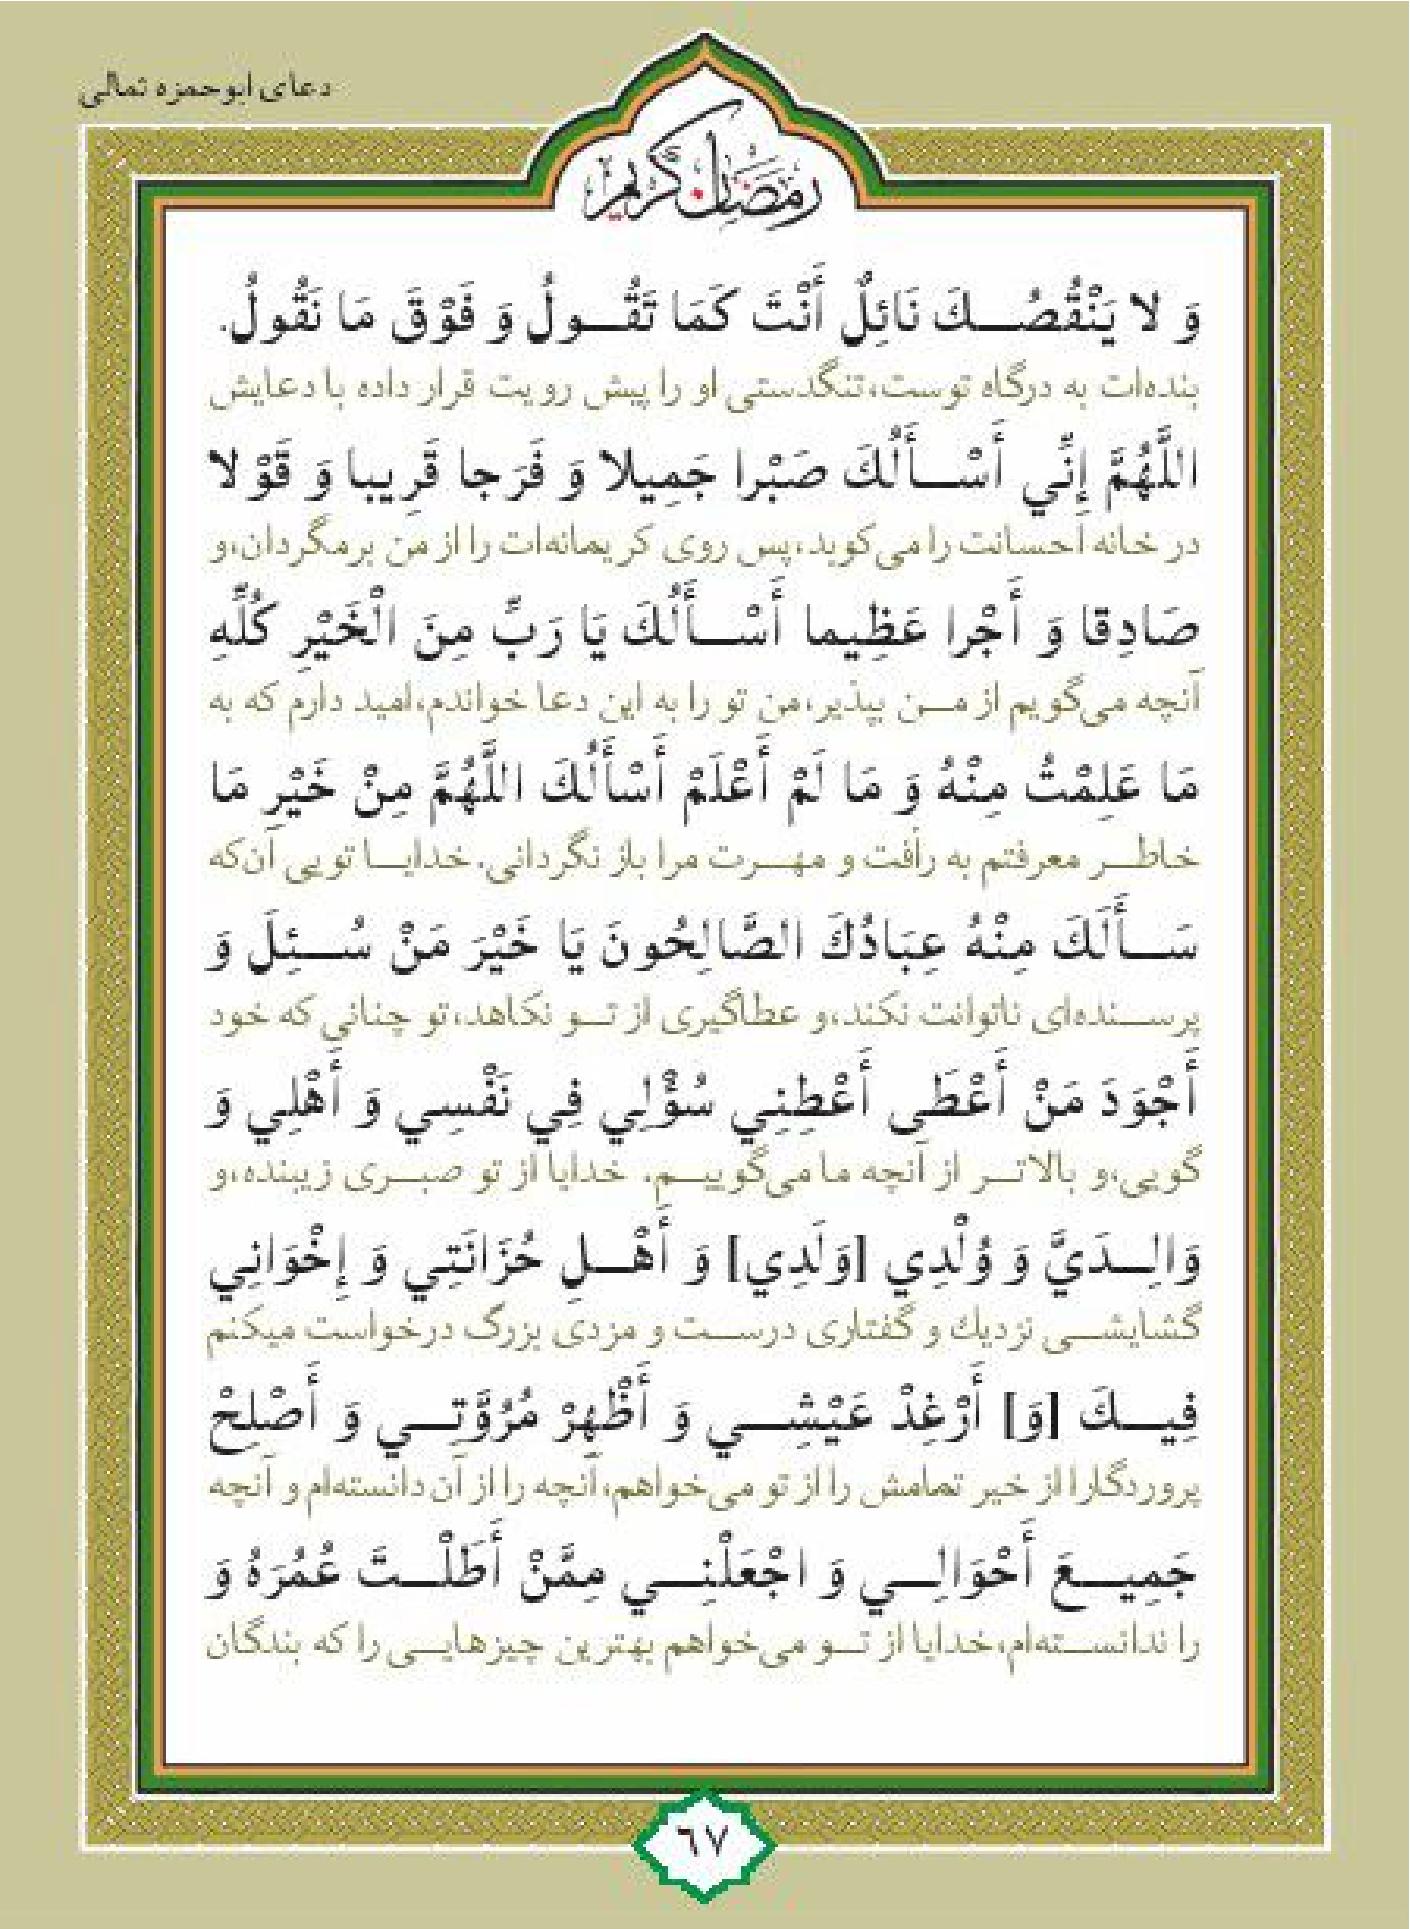 دعای ابوحمزه ثمالی
رمضان کریم
وَ لا يَنْقُصُـــكَ نَائِلٌ أَنْتَ كَمَا تَقُـــولُ وَ فَوْقَ مَا نَقُولُ.
بنده‌ات به درگاه توست،تنگدستی او را پیش رویت قرار داده با دعایش
اللَّهُمَّ إِنِّي أَسْـــأَلُكَ صَبْرا جَمِيلا وَ فَرَجا قَرِيبا وَ قَوْلا
در خانه احسانت را می‌کوبد،پس روی کریمانه‌ات را از من برمگردان،و
صَادِقا وَ أَجْرا عَظِيما أَسْـــأَلُكَ يَا رَبِّ مِنَ الْخَيْرِ كُلِّهِ
آنچه می‌گویم از مـــن بپذیر،من تو را به این دعا خواندم،امید دارم که به
مَا عَلِمْتُ مِنْهُ وَ مَا لَمْ أَعْلَمْ أَسْأَلُكَ اللَّهُمَّ مِنْ خَيْرِ مَا
خاطـــر معرفتم به رأفت و مهـــرت مرا باز نگردانی. خدایـــا تویی آن‌که
سَـــأَلَكَ مِنْهُ عِبَادُكَ الصَّالِحُونَ يَا خَيْرَ مَنْ سُـــئِلَ وَ
پرســـنده‌ای ناتوانت نکند،و عطاگیری از تـــو نکاهد،تو چنانی که خود
أَجْوَدَ مَنْ أَعْطَى أَعْطِنِي سُؤْلِي فِي نَفْسِي وَ أَهْلِي وَ
گویی،و بالاتـــر از آنچه ما می‌گوییـــم. خدایا از تو صبـــری زیبنده،و
وَالِـــدَيَّ وَ وُلْدِي [وَلَدِي] وَ أَهْـــلِ حُزَانَتِي وَ إِخْوَانِي
گشایشـــی نزدیك و گفتاری درســـت و مزدی بزرگ درخواست میکنم
فِيـــكَ [وَ] أَرْغِدْ عَيْشِـــي وَ أَظْهِرْ مُرُوَّتِـــي وَ أَصْلِحْ
پروردگارا از خیر تمامش را از تو می‌خواهم،آنچه را از آن دانسته‌ام و آنچه
جَمِيـــعَ أَحْوَالِـــي وَ اجْعَلْنِـــي مِمَّنْ أَطَلْـــتَ عُمُرَهُ وَ
را ندانســـته‌ام،خدایا از تـــو می‌خواهم بهترین چیزهایـــی را که بندگان
٦٧